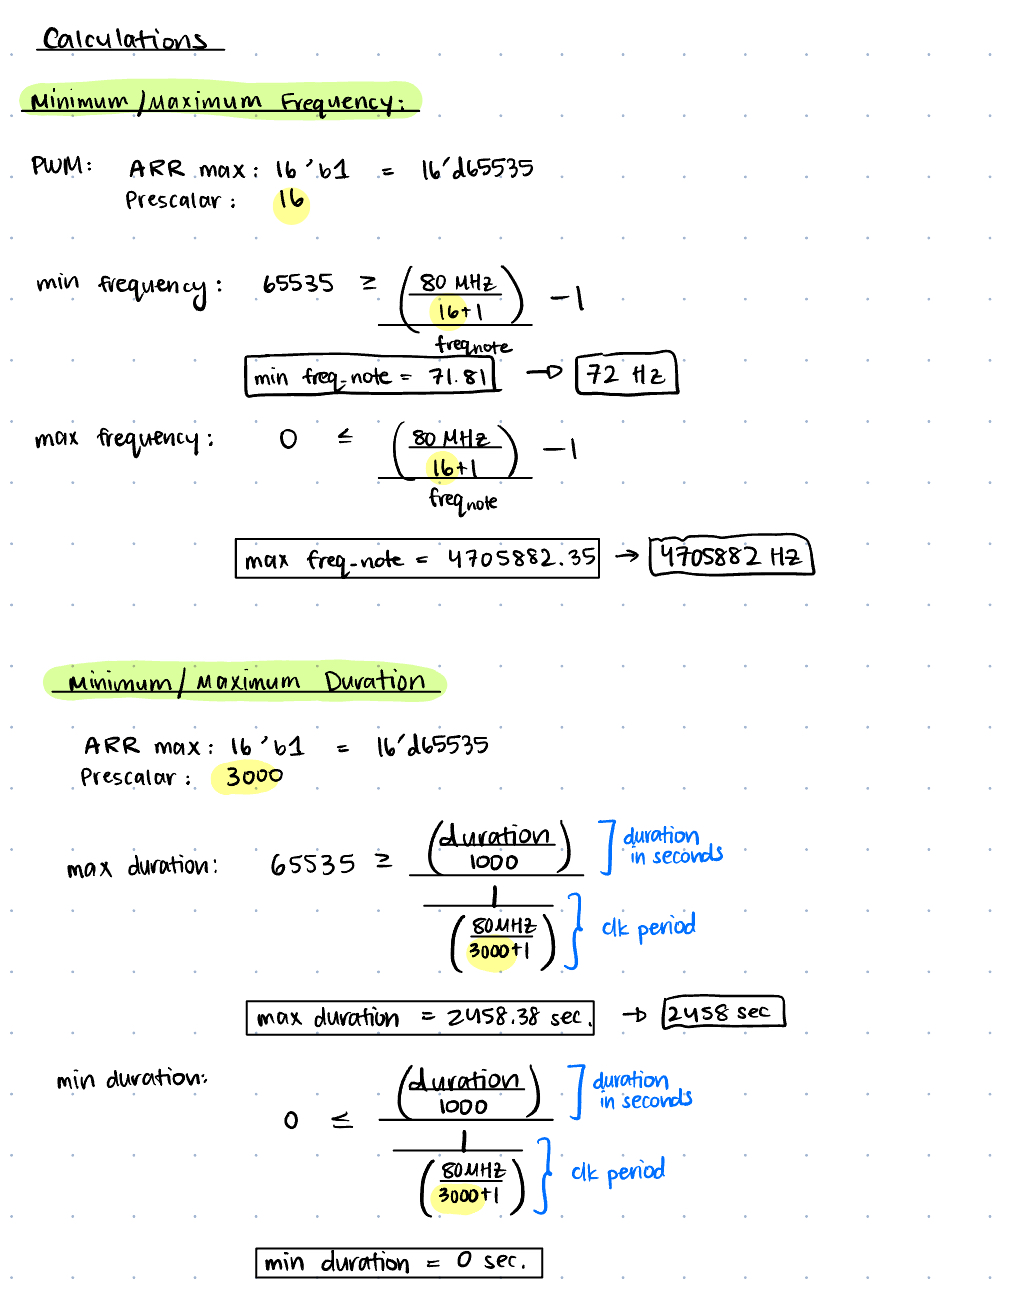 Calculations
Minimum/Maximum Frequency:
PWM: ARR max: 16'b1 = 16'd65535
Prescalar: 16
min frequency: 65535 ≥ (80 MHz / 16+1) / freq_note − 1
min freq_note = 71.81 → 72 Hz
max frequency: 0 ≤ (80 MHz / 16+1) / freq_note − 1
max freq_note = 4705882.35 → 4705882 Hz
Minimum/Maximum Duration
ARR max: 16'b1 = 16'd65535
Prescalar: 3000
max duration: 65535 ≥ (duration / 1000) / (1 / (80MHz / 3000+1))
] duration in seconds
} clk period
max duration = 2458.38 sec. → 2458 sec
min duration: 0 ≤ (duration / 1000) / (1 / (80MHz / 3000+1))
] duration in seconds
} clk period
min duration = 0 sec.